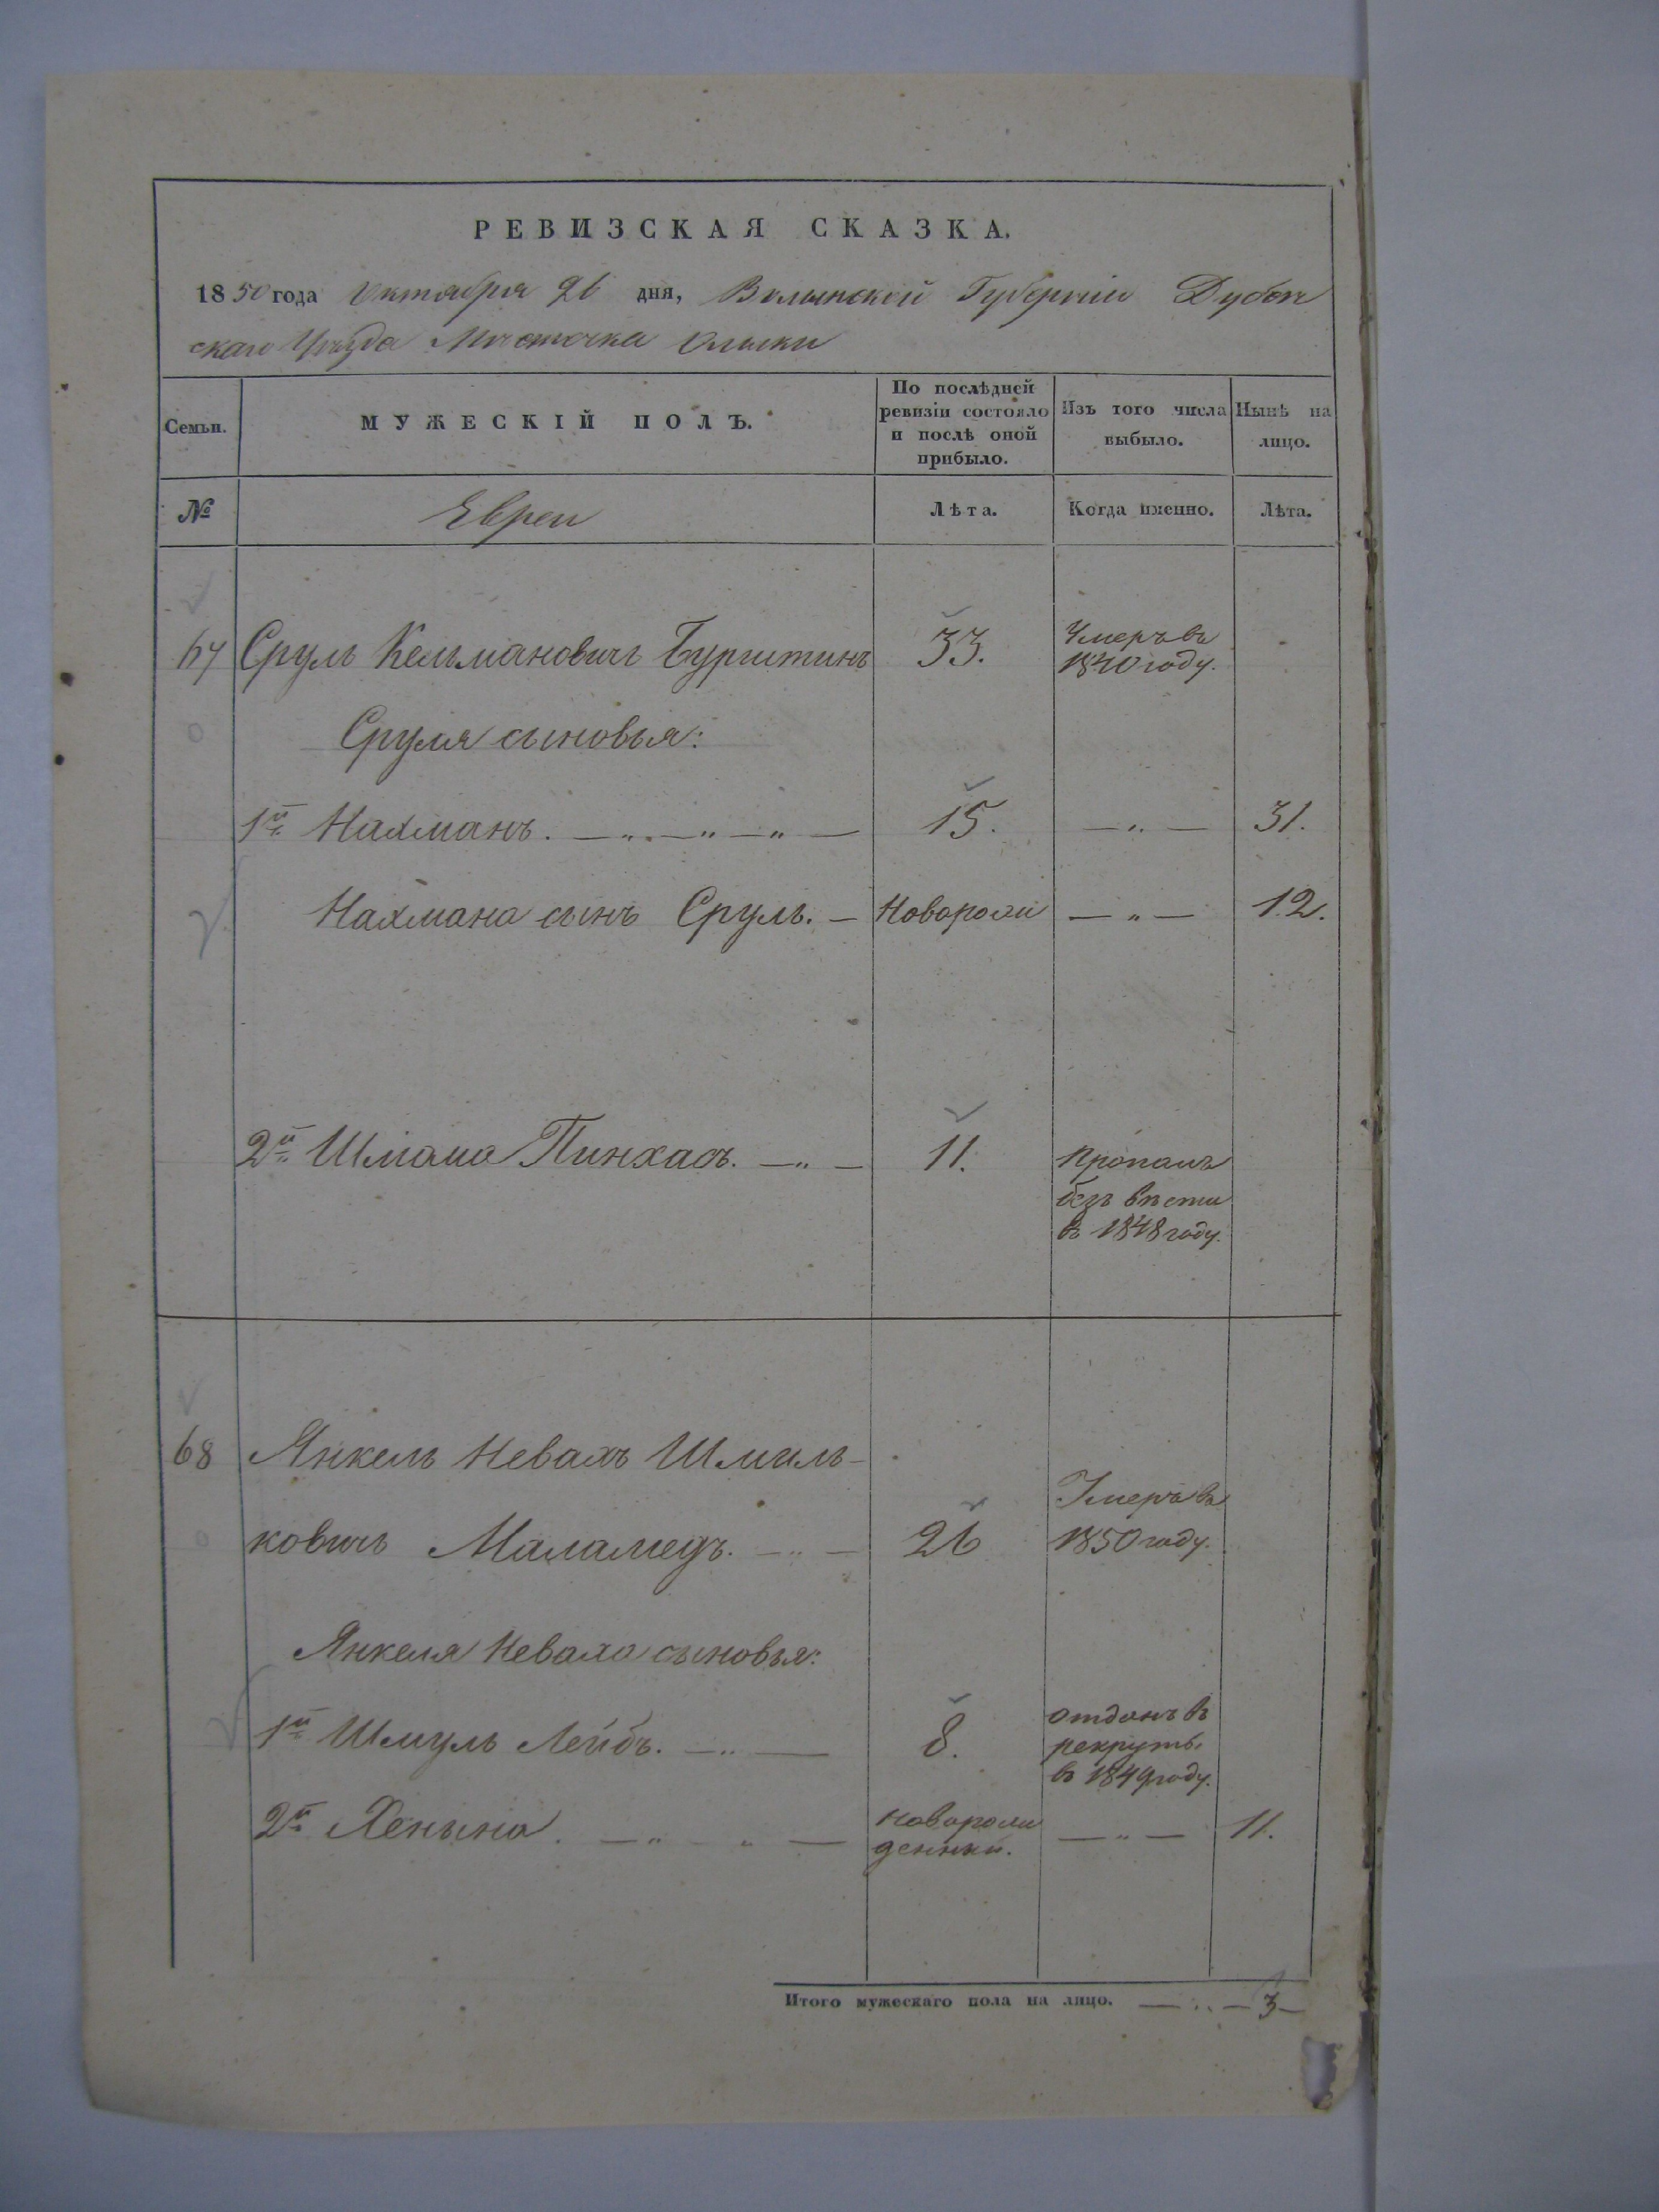 РЕВИЗСКАЯ СКАЗКА.
1850 года Октября 26 дня, Волынской Губерніи Дубен
скаго Уѣзда Мѣстечка Олыки
Семьи.
МУЖЕСКІЙ ПОЛЪ.
По послѣдней
ревизіи состояло
и послѣ оной
прибыло.
Изъ того числа
выбыло.
Нынѣ на
лицо.
№
Евреи
Лѣта.
Когда именно.
Лѣта.
67 Сруль Кельмановичъ Бурштинъ 33. Умеръ въ
1840 году.
Сруля сыновья:
1й Нахманъ. — „ — „ — „ — 15. — „ — 31.
Нахмана сынъ Сруль. — Новорож — „ — 12.
2й Шлема Пинхасъ. — „ — 11. Пропалъ
безъ вѣсти
въ 1848 году.
68 Янкель Невахъ Шмиль-
Умеръ въ
ковичъ Маламедъ. — „ — 26 1850 году.
Янкеля Неваха сыновья:
1й Шмуль Лейбъ. — „ — 8. отданъ въ
рекруты
въ 1849 году.
2й Хенына. — „ — „ — новорож
денный. — „ — 11.
Итого мужескаго пола на лицо. — „ — 3 —